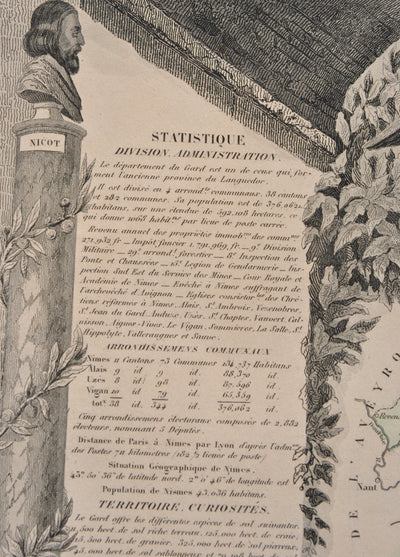 NICOT
STATISTIQUE
DIVISION, ADMINISTRATION.
Le département du Gard est un de ceux qui for-
ment l'ancienne province du Languedoc.
Il est divisé en 4 arrond.ts communaux, 38 cantons
et 282 communes. Sa population est de 376,062
habitans, sur une étendue de 592,108 hectares, ce
qui donne 1068 habit.ns par lieue de poste carrée.
Revenu annuel des propriétés immob.les des comm.nes
271,932 fr. — Impôt foncier 1,791,969 fr. — 9.e Division
Militaire — 29.e arrond.t forestier — 8.e Inspection des
Ponts et Chaussées — 15.e Légion de Gendarmerie — Ins-
pection Sud Est du Service des Mines — Cour Royale et
Académie de Nimes — Evêché à Nimes suffragant de
l'archevêché d'Avignon — Eglises consistor.les des Chré-
tiens réformés à Nimes, Alais, S.t Ambroix, Vezenobres,
S.t Jean du Gard, Anduze, Uzès, S.t Chaptes, Vauvert, Cal-
visson, Aigues-Vives, Le Vigan, Sommières, La Salle, S.t
Hippolyte, Valleraugues et Sumène.
ARRONDISSEMENS COMMUNAUX
Nimes 11 Cantons 73 Communes 134,737 Habitans
Alais 9 id. id. 88,370 id.
Uzès 8 id. 98 id. 87,596 id.
Vigan 10 id. 79 id. 65,359 id.
tot.x 38 id. 344 id. 376,062 id.
Cinq arrondissemens électoraux composés de 2,882
électeurs, nommant 5 Députés.
Distance de Paris à Nimes par Lyon d'après l'adm.on
des Postes 711 kilomètres (182 ½ lieues de poste)
Situation Géographique de Nimes.
43° 50' 36" de latitude nord. 2° 0' 46" de longitude est
Population de Nismes 43,036 habitans.
TERRITOIRE, CURIOSITÉS.
Le Gard offre les différentes espèces de sol suivantes
500 hect. de sol riche terrain, 125,000 hect. de craie,
500 hect. de gravier, 325,000 hect. de sol pierreux,
000 hect. de sol sablonneux et
DE L'AVEYRON
Nant